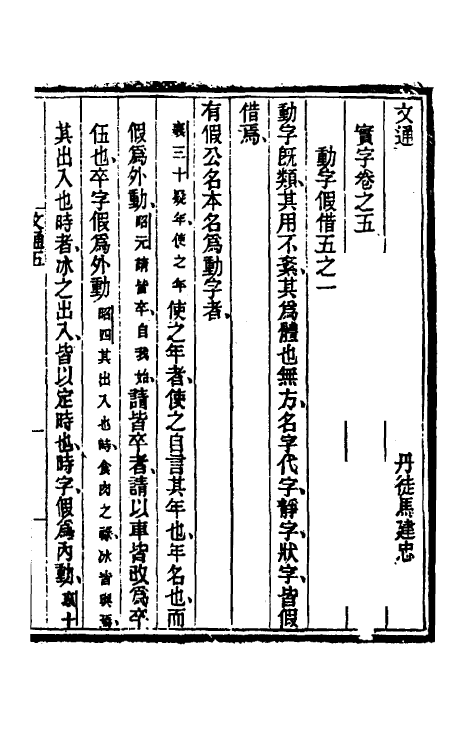 文通
丹徒馬建忠
實字卷之五
動字假借五之一
動字旣類、其用不紊、其爲體也無方、名字代字、靜字、狀字、皆假
借焉、
有假公名本名爲動字者、
襄三十疑年使之年使之年者、使之自言其年也、年名也、而
假爲外動、昭元請皆卒、自我始、請皆卒者、請以車皆改爲卒
伍也、卒字假爲外動昭四其出入也時、食肉之祿、冰皆與焉、
其出入也時者、冰之出入、皆以定時也、時字假爲內動、襄十
文通五